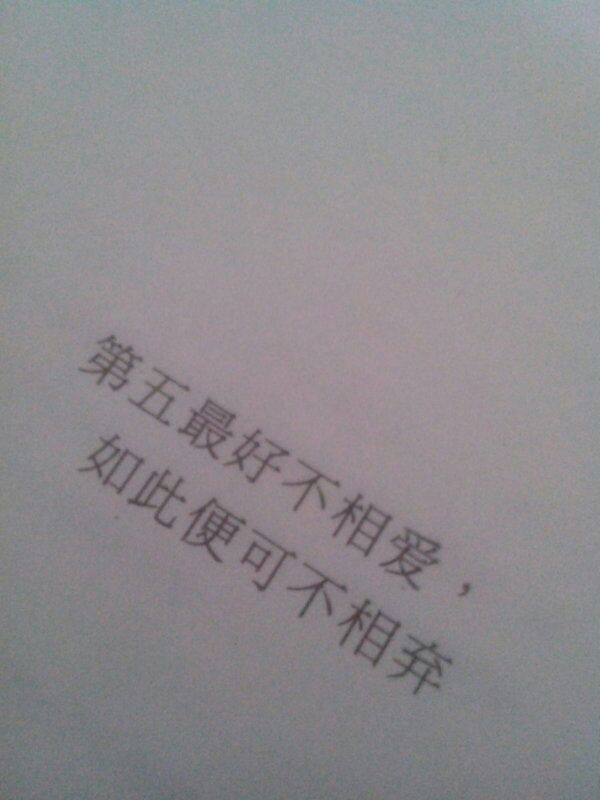 第五最好不相爱，
如此便可不相弃